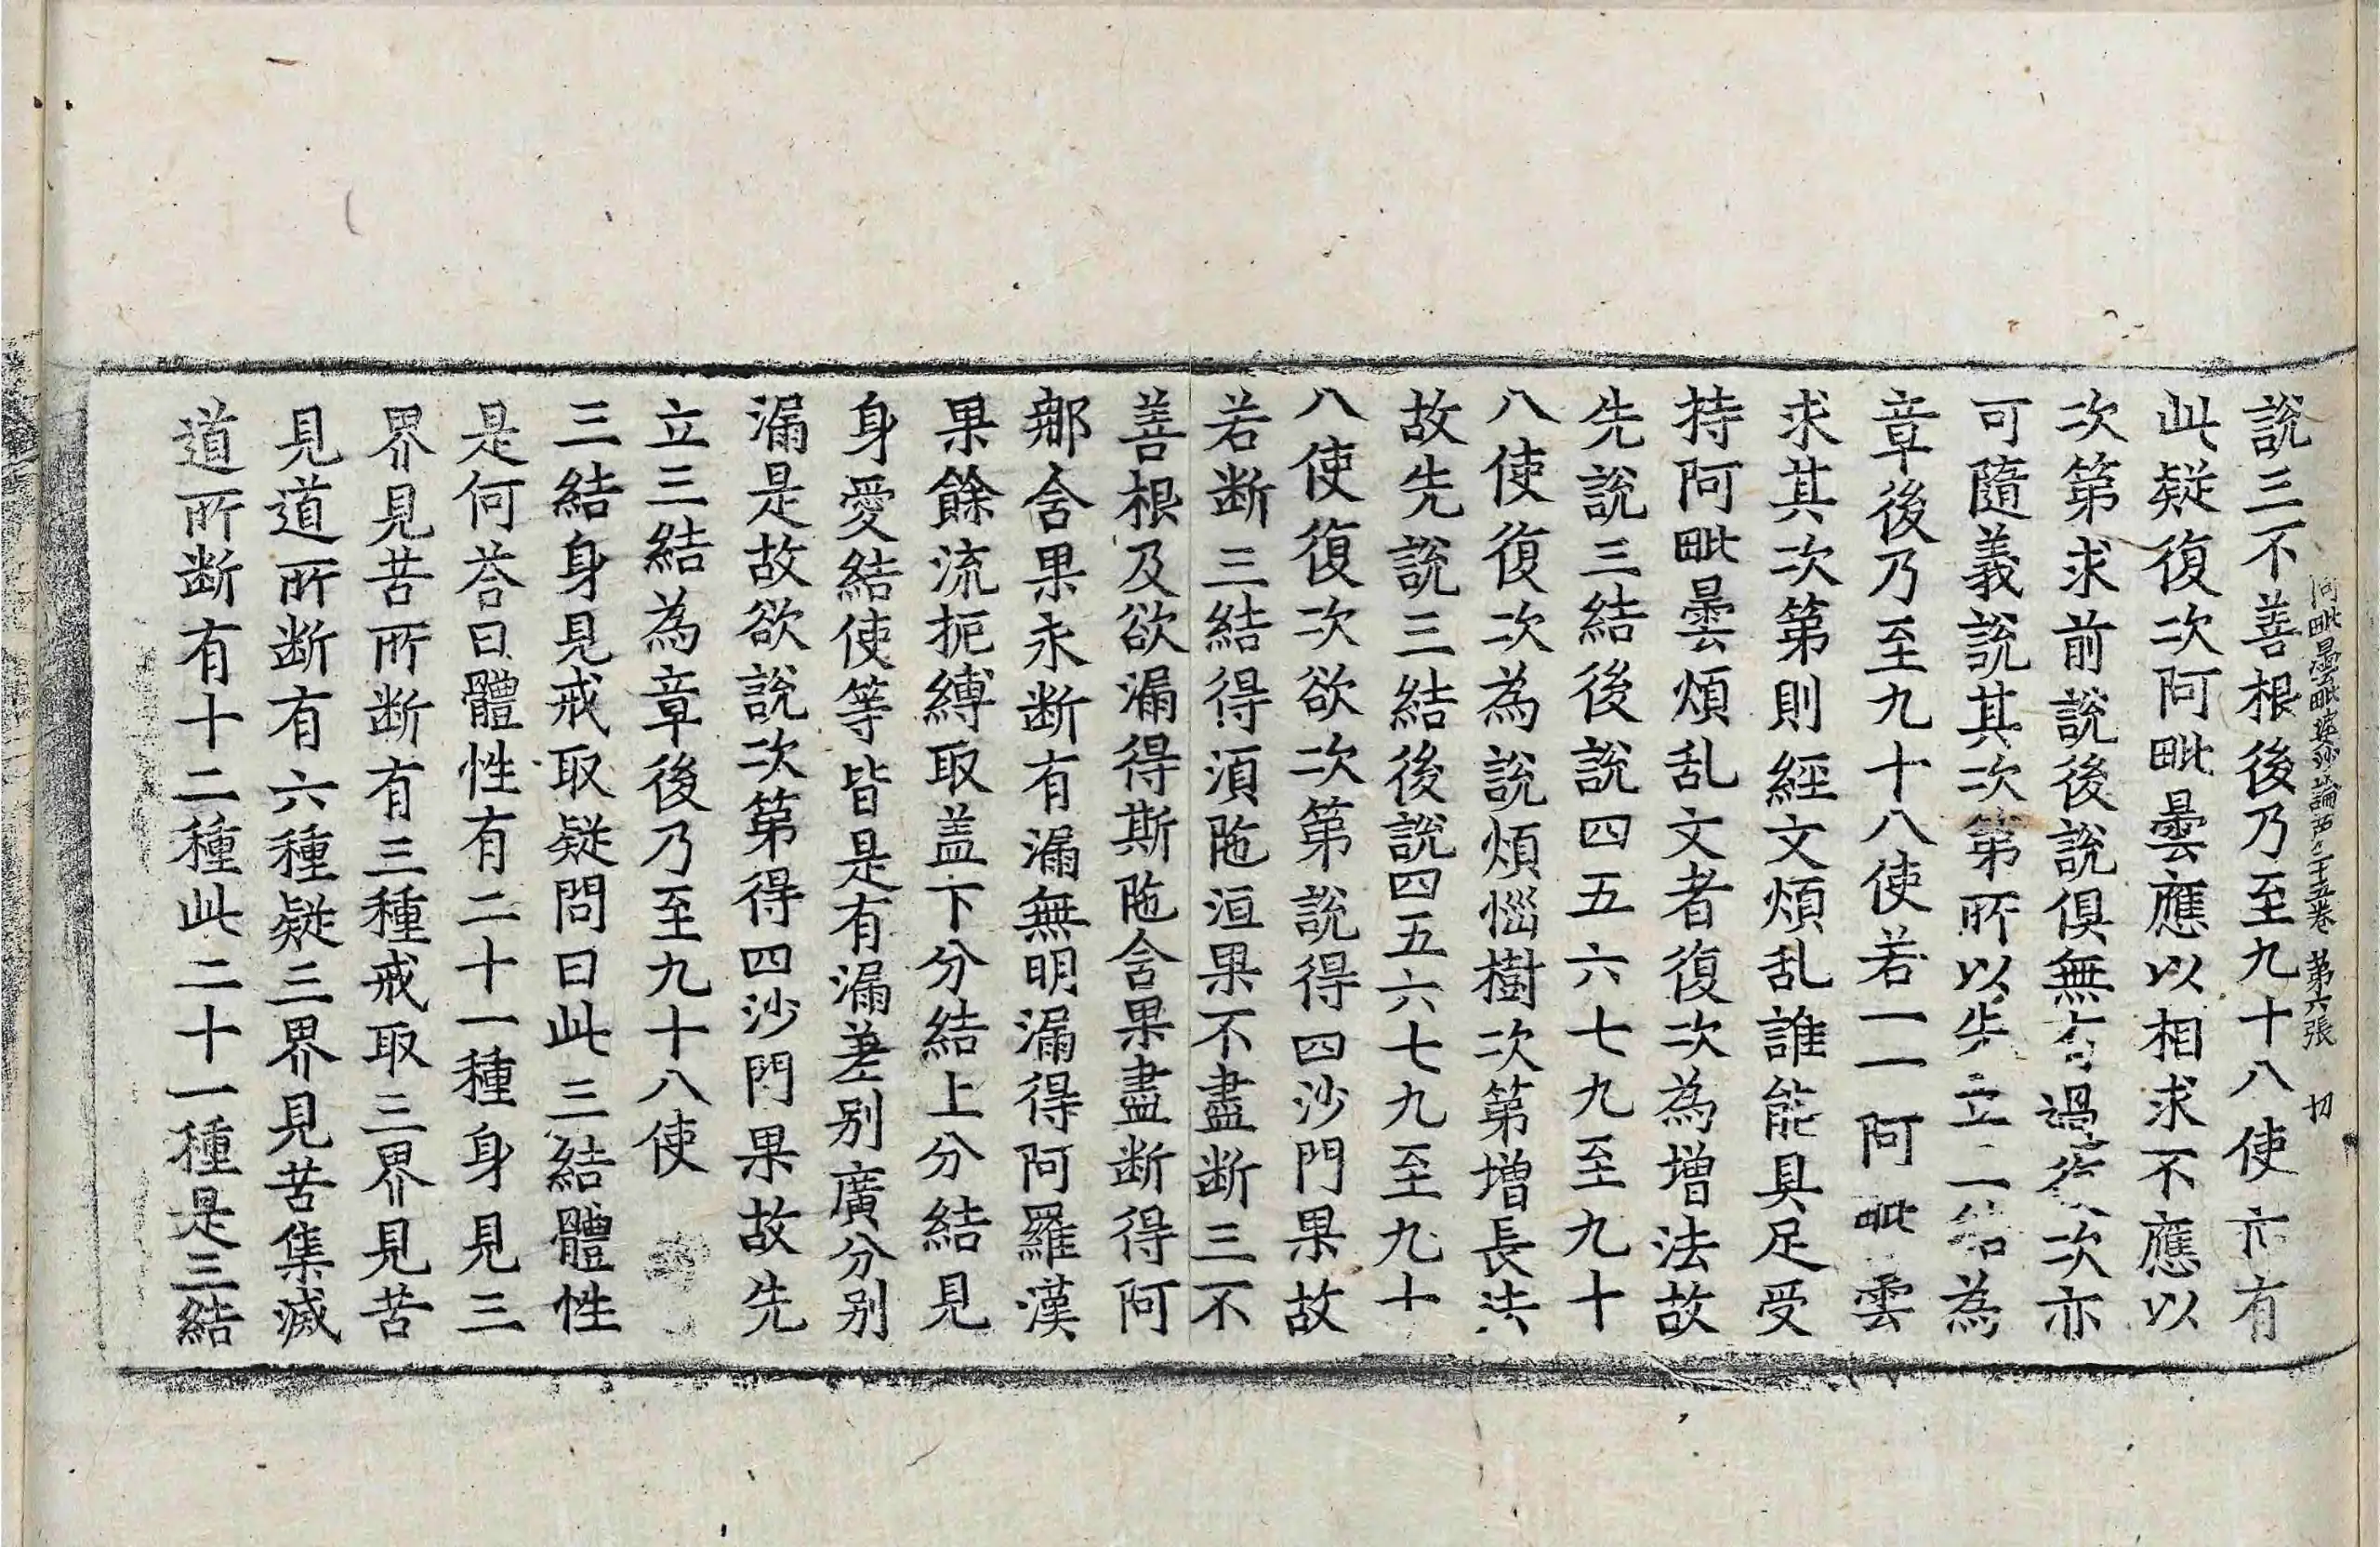 說三不善根後乃至九十八使亦有
阿毗曇毗婆沙論第二十五卷 第六張 切
此疑復次阿毗曇應以相求不應以
次第求前說後說俱無有過復次亦
可隨義說其次第所以先立三結為
章後乃至九十八使若一一阿毗曇
求其次第則經文煩乱誰能具足受
持阿毗曇煩乱文者復次為增法故
先說三結後說四五六七九至九十
八使復次為說煩惱樹次第增長法
故先說三結後說四五六七九至九十
八使復次欲次第說得四沙門果故
若断三結得湏陁洹果不盡断三不
善根及欲漏得斯陁含果盡断得阿
那含果永断有漏無明漏得阿羅漢
果餘流扼縛取盖下分結上分結見
身愛結使等皆是有漏差别廣分别
漏是故欲說次第得四沙門果故先
立三結為章後乃至九十八使
三結身見戒取疑問曰此三結體性
是何荅曰體性有二十一種身見三
界見苦所断有三種戒取三界見苦
見道所断有六種疑三界見苦集滅
道所断有十二種此二十一種是三結